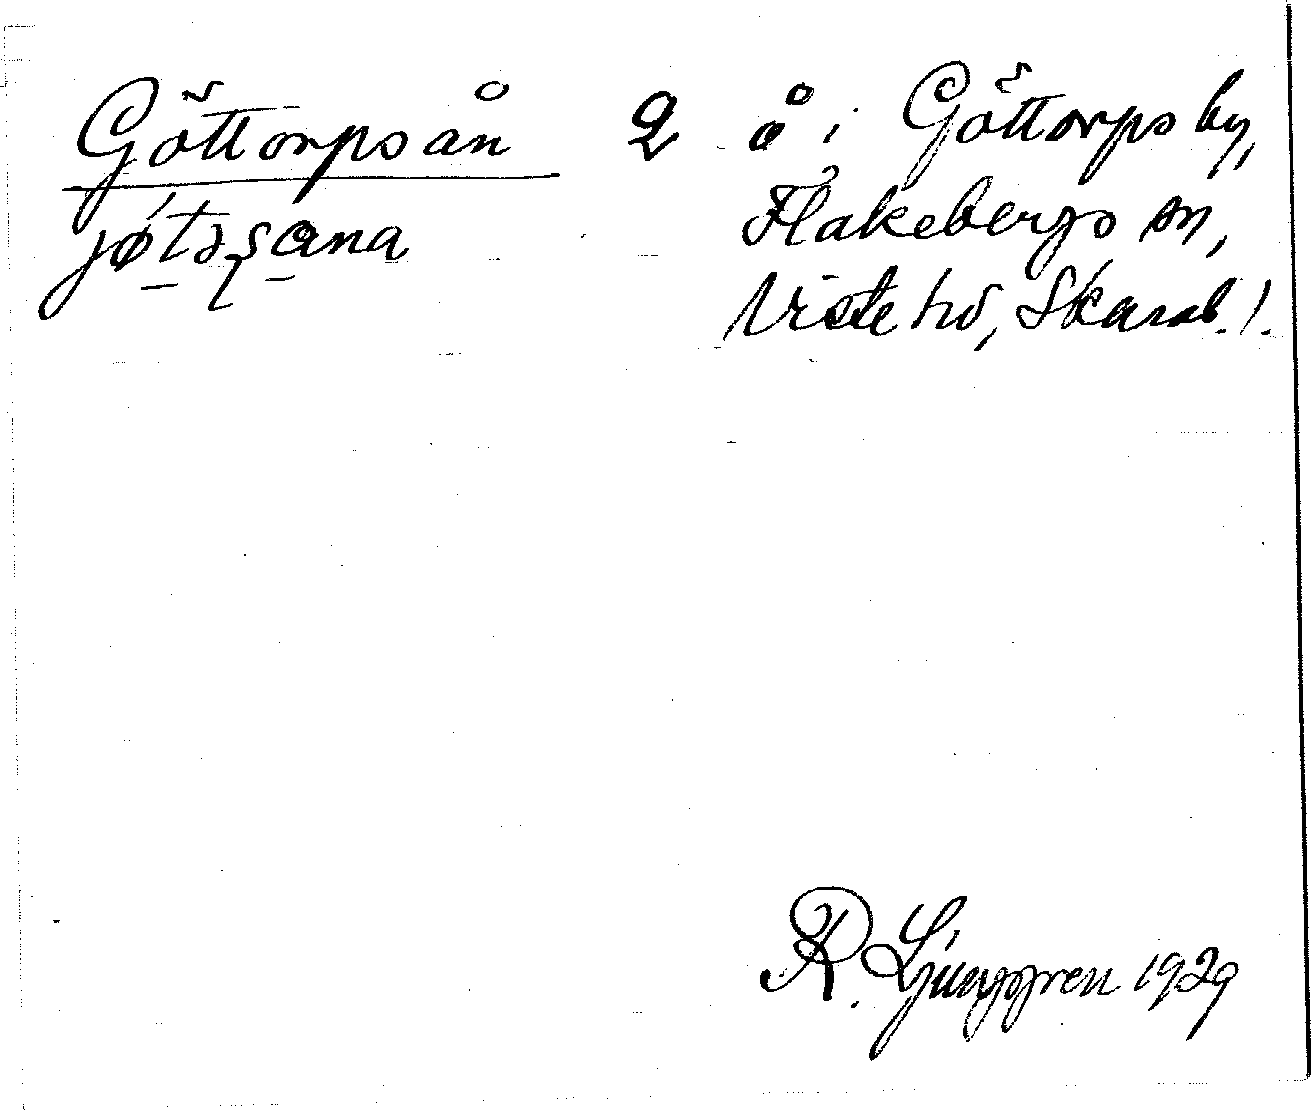 Göttorpsån 2 å i Göttorps by,
Flakebergs sn,
Viste hd, Skarab. l.
R. Ljunggren 1929